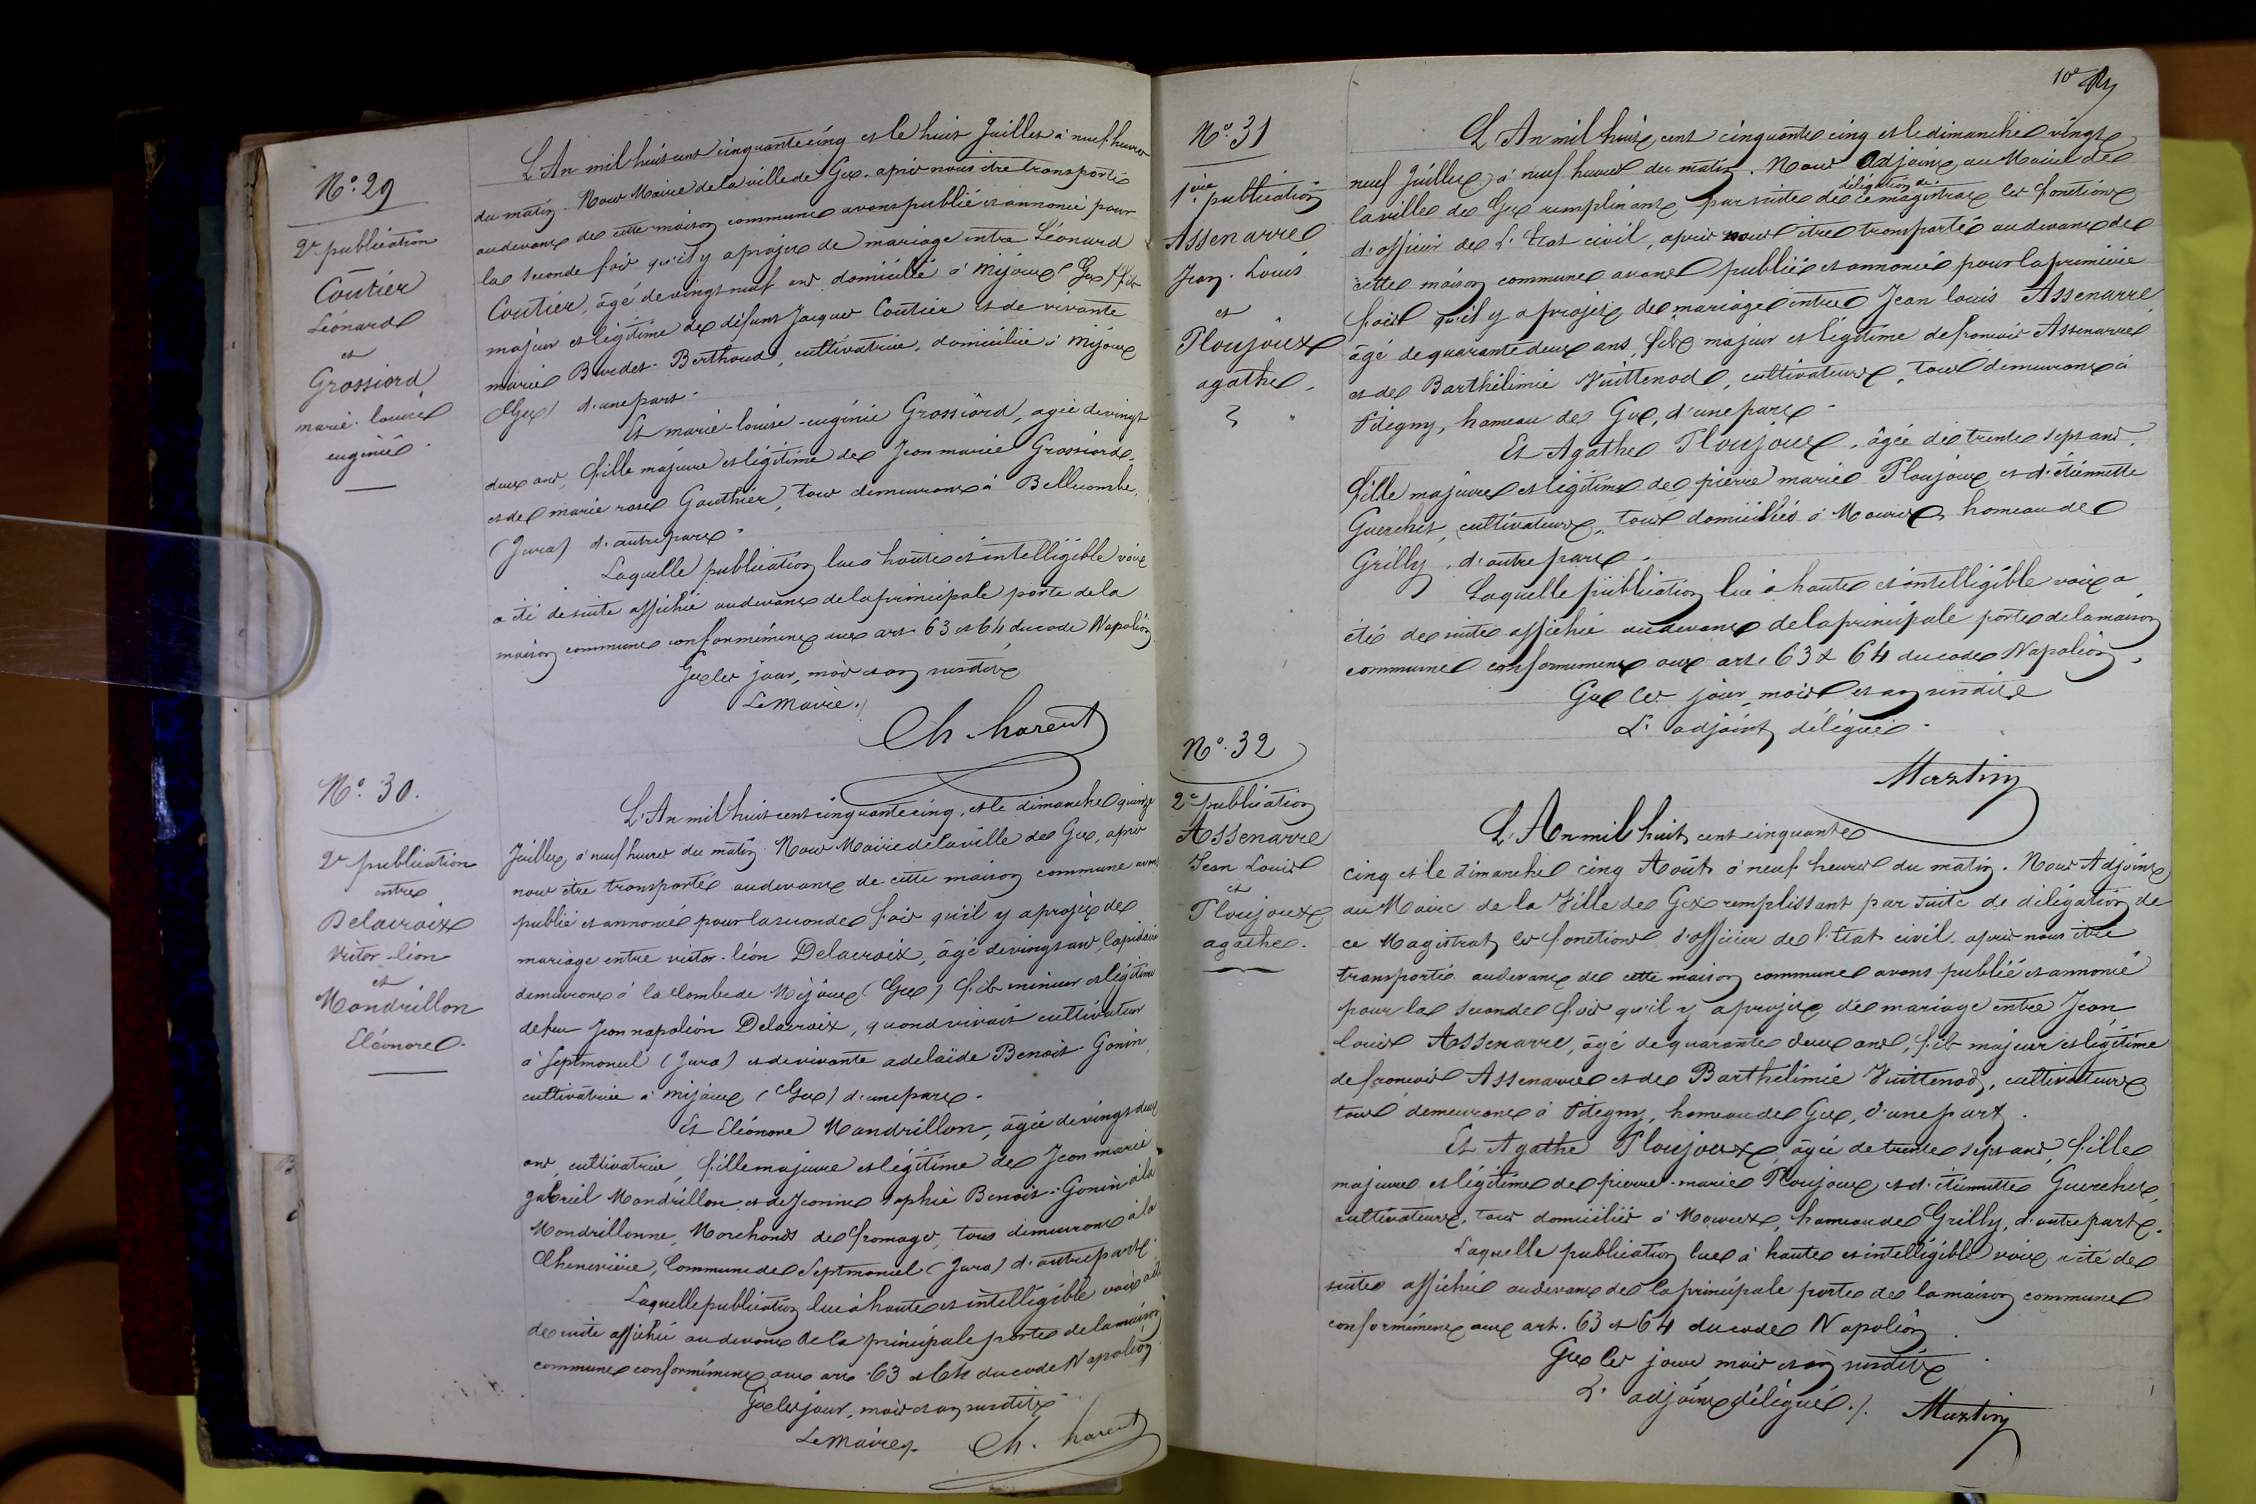 N.º 29
2e publication
Coutier
Léonard
et
Grossiord
marie-louise
eugénie
L'An mil huit cent cinquante cinq et le huit Juillet à neuf heures
du matin. Nous Maire de la ville de Gex. après nous être transporté
audevant de cette maison commune avons publié et annoncé pour
la seconde fois qu'il y a projet de mariage entre Léonard
Coutier, âgé de vingt neuf ans domicilié à Mijoux (Gex) fils
majeur et légitime de défunt Jacques Coutier et de vivante
marie Burdet-Berthoud, cultivatrice, domiciliée à Mijoux
(Gex) d'une part.
Et marie-louise-eugénie Grossiord, agée de vingt
deux ans, fille majeure et légitime de Jean marie Grossiord,
et de marie rose Gauthier, tous demeurant à Bellecombe,
(Jura) d'autre part.
Laquelle publication lue à haute et intelligible voix
a été de suite affichée audevant de la principale porte de la
maison commune conformément aux art. 63 et 64 du code Napoléon
Gex les jour, mois et an susdits
Le Maire./
Ch. harent
N.º 30.
2e publication
entre
Delacroix
Victor-léon
et
Mandrillon
Eléonore.
L'An mil huit cent cinquante cinq, et le dimanche quinze
Juillet à neuf heures du matin. Nous Maire de la ville de Gex, après
nous être transporté audevant de cette maison commune avons
publié et annoncé pour la seconde fois qu'il y a projet de
mariage entre victor-léon Delacroix, âgé de vingt ans, lapidaire
demeurant à la Combe de Mijoux (Gex) fils mineur et légitime
de feu Jean napoléon Delacroix, quand vivait cultivateur
à Septmoncel (Jura) et de vivante adelaïde Benoit-Gonin,
cultivatrice à mijoux (Gex) d'une part.
Et Eléonore Mandrillon, âgée de vingt deux
ans, cultivatrice, fille majeure et légitime de Jean marie
gabriel Mandrillon et de Jeanne sophie Benoit-Gonin à la
Mandrillonne, Marchands de fromages, tous demeurant à la
Chenevière, Commune de Septmoncel (Jura) d'autre part.
Laquelle publication lue à haute et intelligible voix a été
de suite affichée audevant de la principale porte de la maison
commune conformément aux art. 63 et 64 du code Napoléon
Gex les jour, mois et an susdits
Le Maire Ch. harent
10e
N.º 31
1ère publication
Assenarre
Jean-Louis
et
Ploujoux
agathe.
L'An mil huit cent cinquante cinq et le dimanche vingt
neuf Juillet à neuf heures du matin. Nous Adjoint au Maire de
la ville de Gex remplissant par suite de délégation de ce magistrat les fonctions
d'officier de l'Etat civil, après nous être transporté audevant de
cette maison commune avons publié et annoncé pour la première
fois qu'il y a projet de mariage entre Jean louis Assenarre
âgé de quarante deux ans, fils majeur et légitime de francois Assenarre
et de Barthélimie Vuittenod, cultivateurs, tous demeurant à
Pitegny, hameau de Gex, d'une part.
Et Agathe Ploujoux, âgée de trente sept ans,
fille majeure et légitime de pierre marie Ploujoux et d'étiennette
Guerchet, cultivateurs, tous domiciliés à Mourex, hameau de
Grilly, d'autre part.
Laquelle publication lue à haute et intelligible voix a
été de suite affichée audevant de la principale porte de la maison
commune conformément aux arts 63 & 64 du code Napoléon.
Gex les jour, mois et an susdits
L'adjoint délégué.
Martin
N.º 32
2e publication
Assenarre
Jean Louis
et
Ploujoux
agathe.
L'An mil huit cent cinquante
cinq et le dimanche cinq Août à neuf heures du matin. Nous Adjoint
au Maire de la Ville de Gex remplissant par suite de délégation de
ce Magistrat les fonctions d'officier de l'Etat civil. après nous être
transporté audevant de cette maison commune avons publié et annoncé
pour la seconde fois qu'il y a projet de mariage entre Jean
louis Assenarre, âgé de quarante deux ans, fils majeur et légitime
de francois Assenarre et de Barthélimie Vuittenod, cultivateurs
tous demeurant à Pitegny, hameau de Gex, d'une part.
Et Agathe Ploujoux, âgée de trente sept ans, fille
majeure et légitime de pierre-marie Ploujoux et d'étiennette Guerchet,
cultivateurs, tous domiciliés à Mourex, hameau de Grilly, d'autre part.
Laquelle publication lue à haute et intelligible voix a été de
suite affichée audevant de la principale porte de la maison commune
conformément aux art. 63 et 64 du code Napoléon.
Gex les jour mois et an susdits
L'adjoint délégué./. Martin